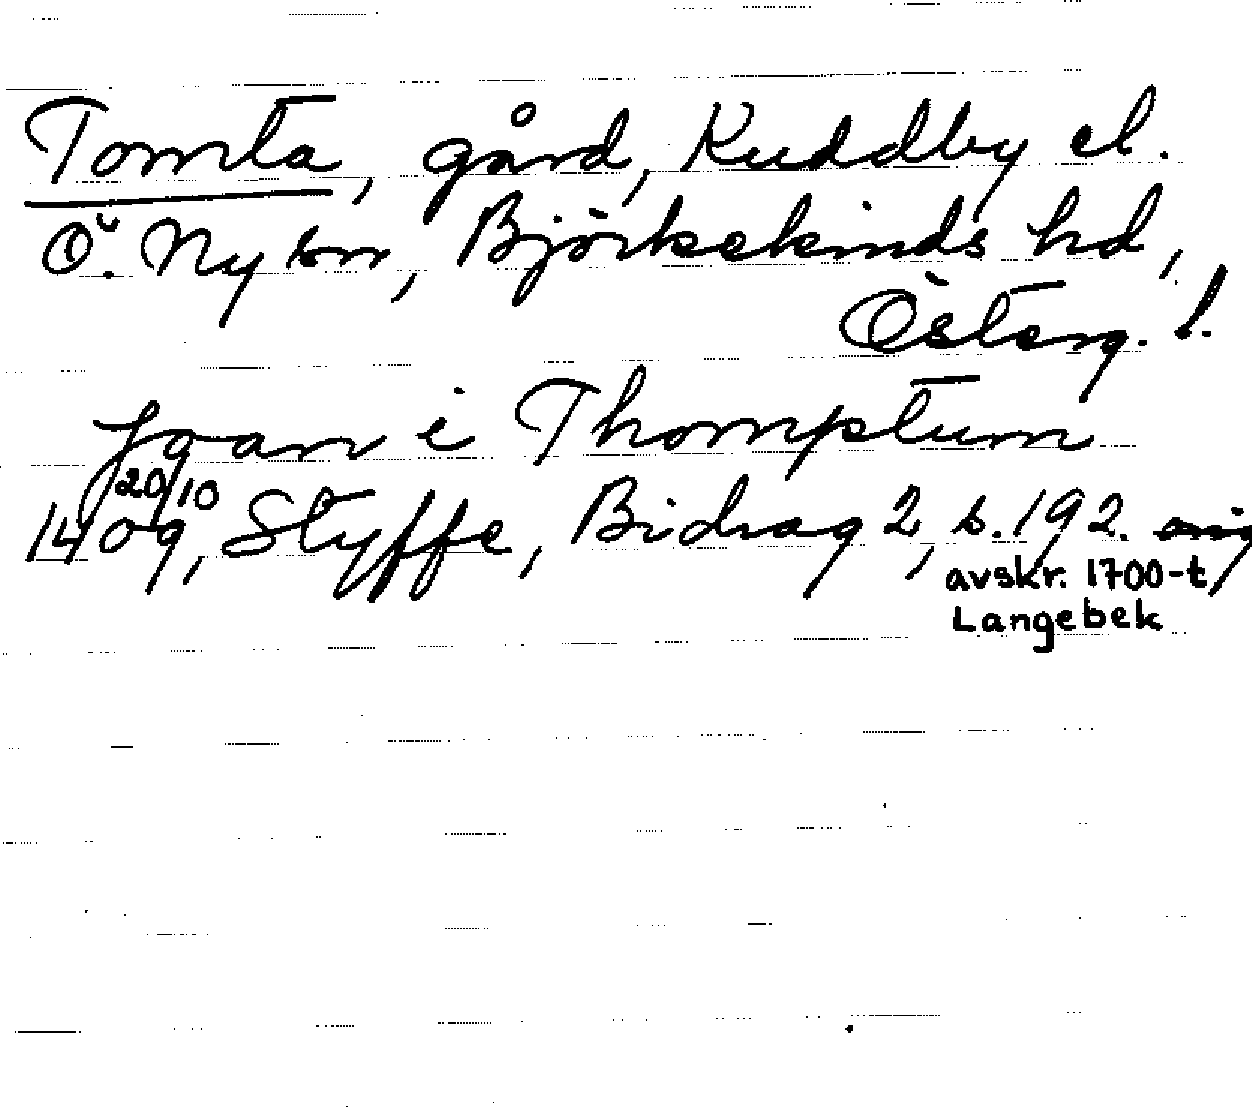 Tomta, gård, Kuddby el.
Ö. Ny kn, Björkekinds hd,
Österg. l.
Joan i Thomptum
20/10
1409, Styffe, Bidrag 2, s. 192. orig
avskr. 1700-t
Langebek